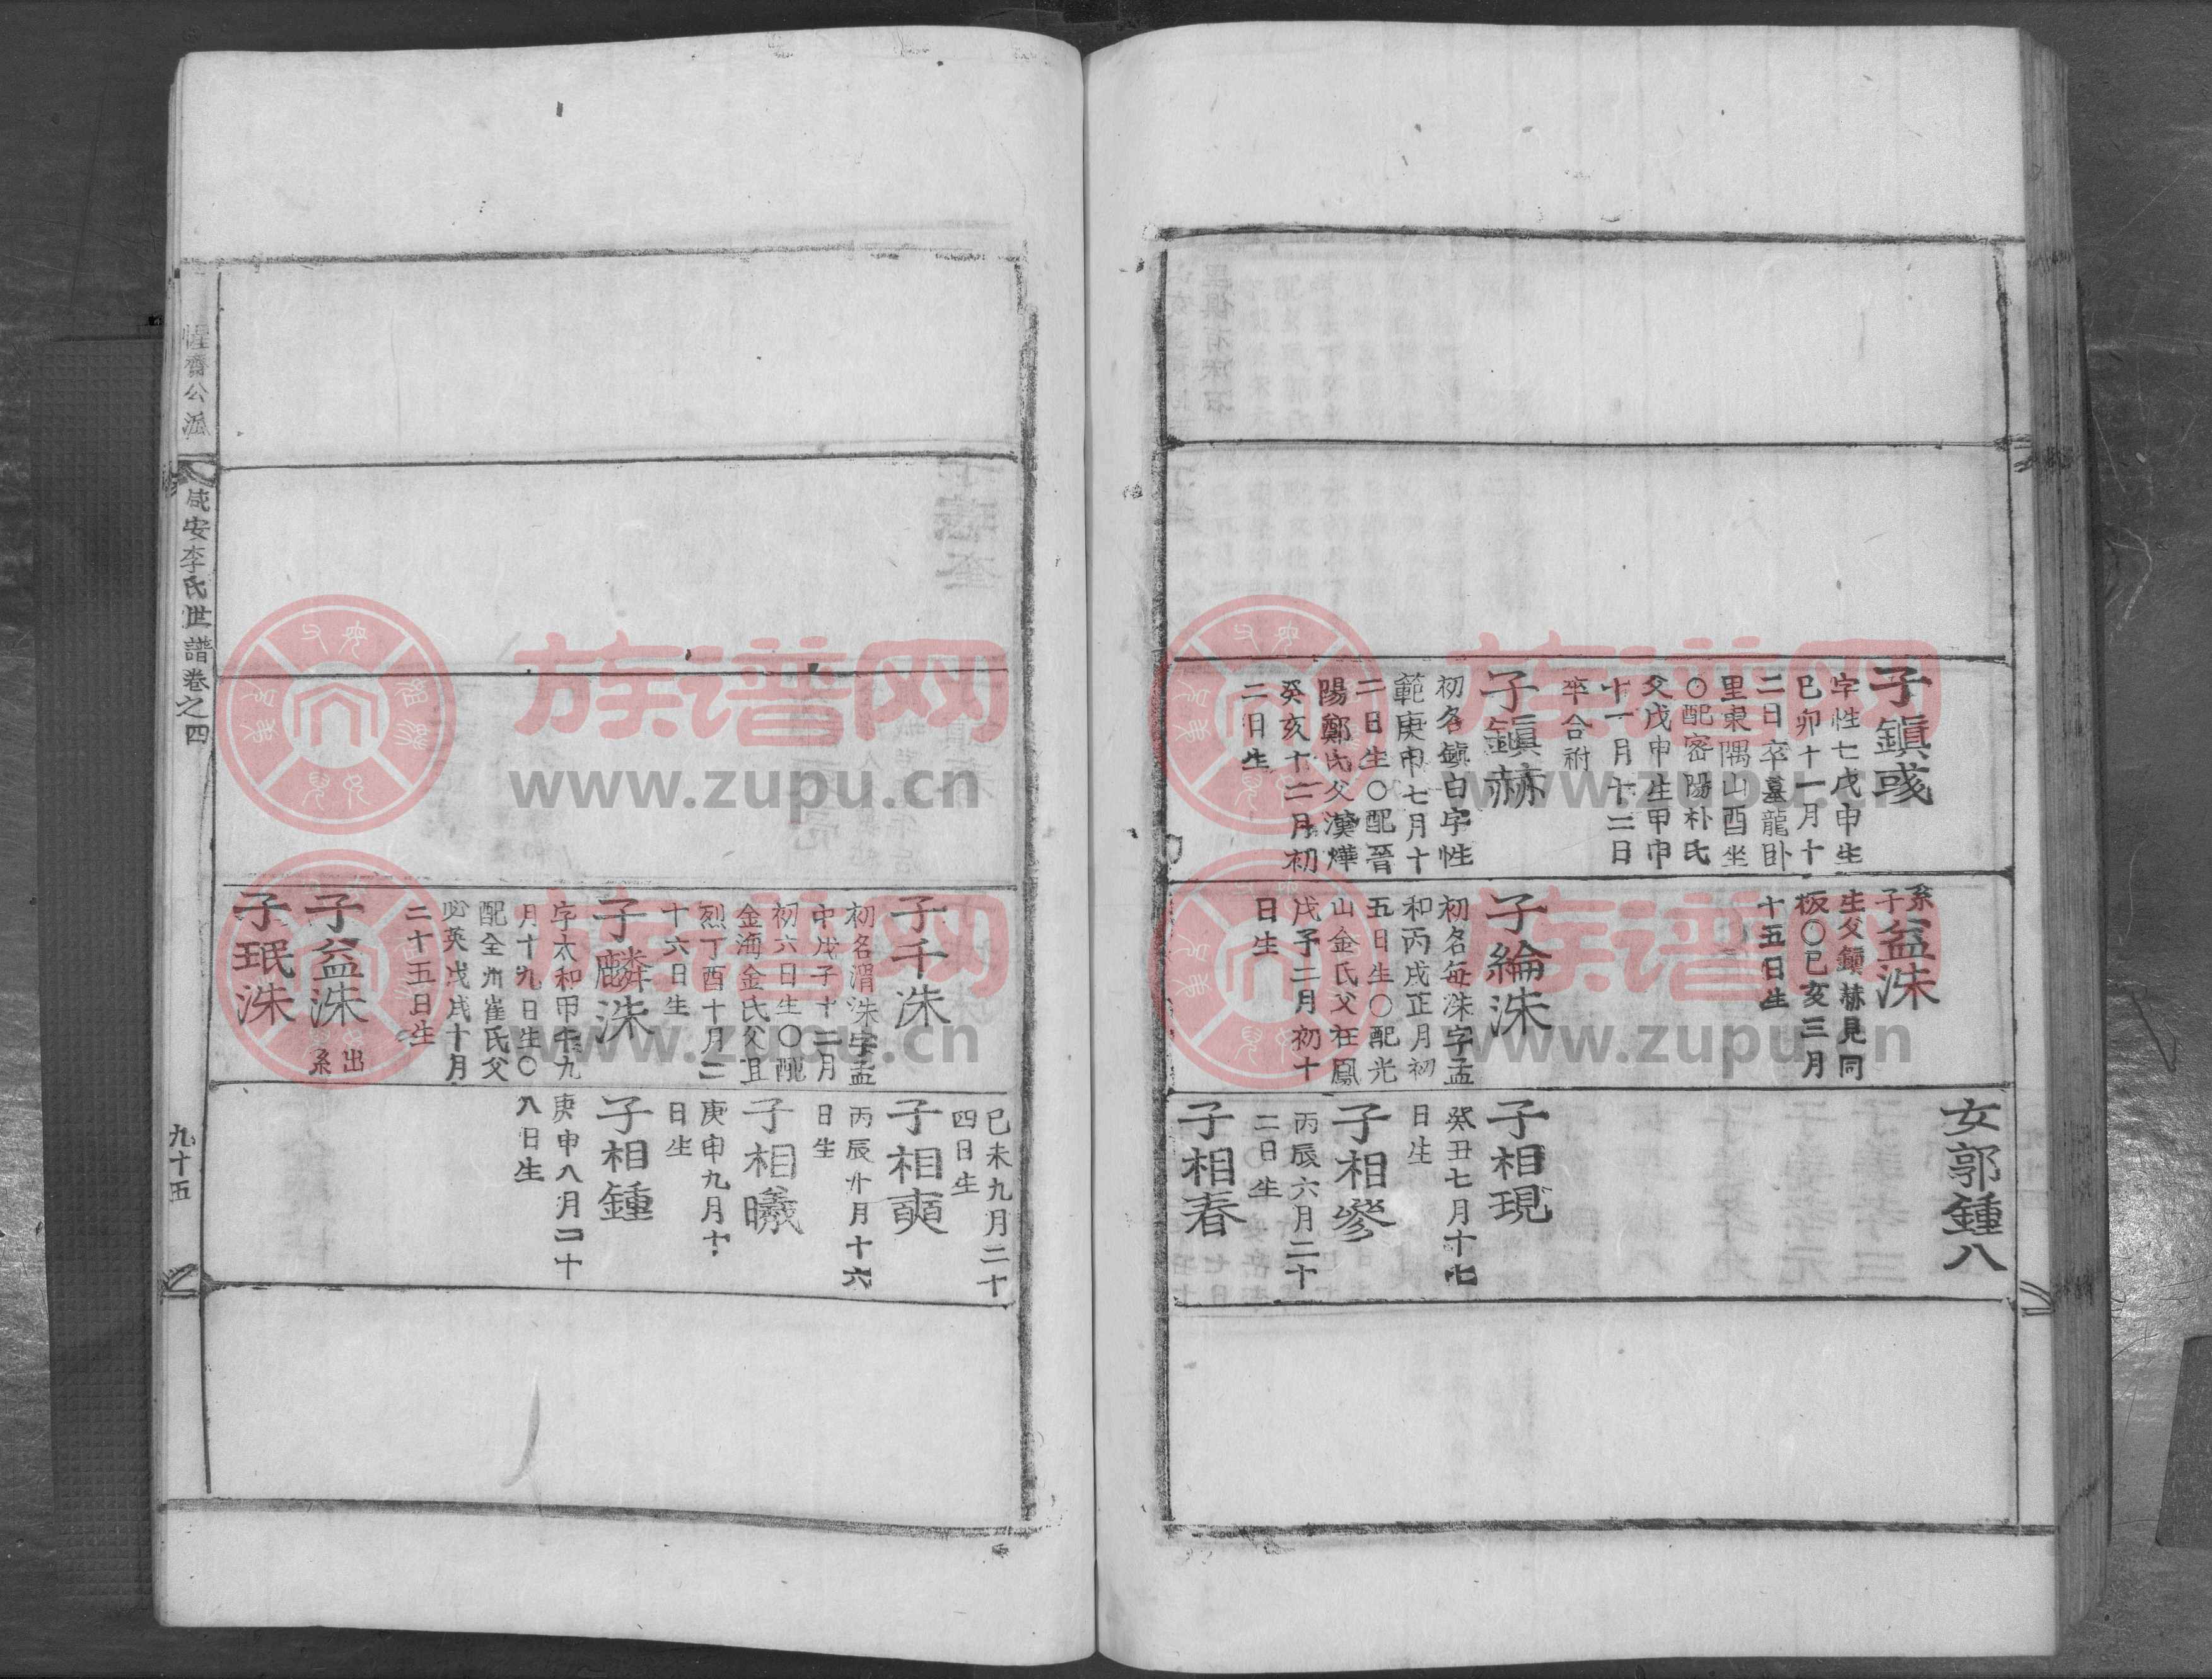 子鎮彧
字性七戊申生
己卯十一月十
二日卒墓龍卧
里東隅山酉坐
〇配密陽朴氏
父戊申生甲申
十一月十二日
卒合祔
子鎮赫
初名鎮白字性
範庚申七月十
二日生〇配晉
陽鄭氏父漢燁
癸亥十二月初
二日生
系子益洙
生父鎮赫見同
板〇己亥三月
十五日生
子綸洙
初名每洙字孟
和丙戌正月初
五日生〇配光
山金氏父在鳳
戊子二月初十
日生
女郭鍾八
子相現
癸丑七月十七
日生
子相參
丙辰六月二十
二日生
子相春
子千洙
初名渭洙字孟
中戊子十二月
初六日生〇配
金海金氏父且
烈丁酉十月二
十六日生
子麟洙
字太和甲午九
月十九日生〇
配全州崔氏父
必英戊戌十月
二十五日生
子益洙
出系
子珉洙
己未九月二十
四日生
子相奭
丙辰十月十六
日生
子相曦
庚申九月十
日生
子相鍾
庚申八月二十
八日生
惺齋公派
咸安李氏世譜卷之四
九十五
族谱网
www.zupu.cn
族谱网
www.zupu.cn
族谱网
www.zupu.cn
族谱网
www.zupu.cn